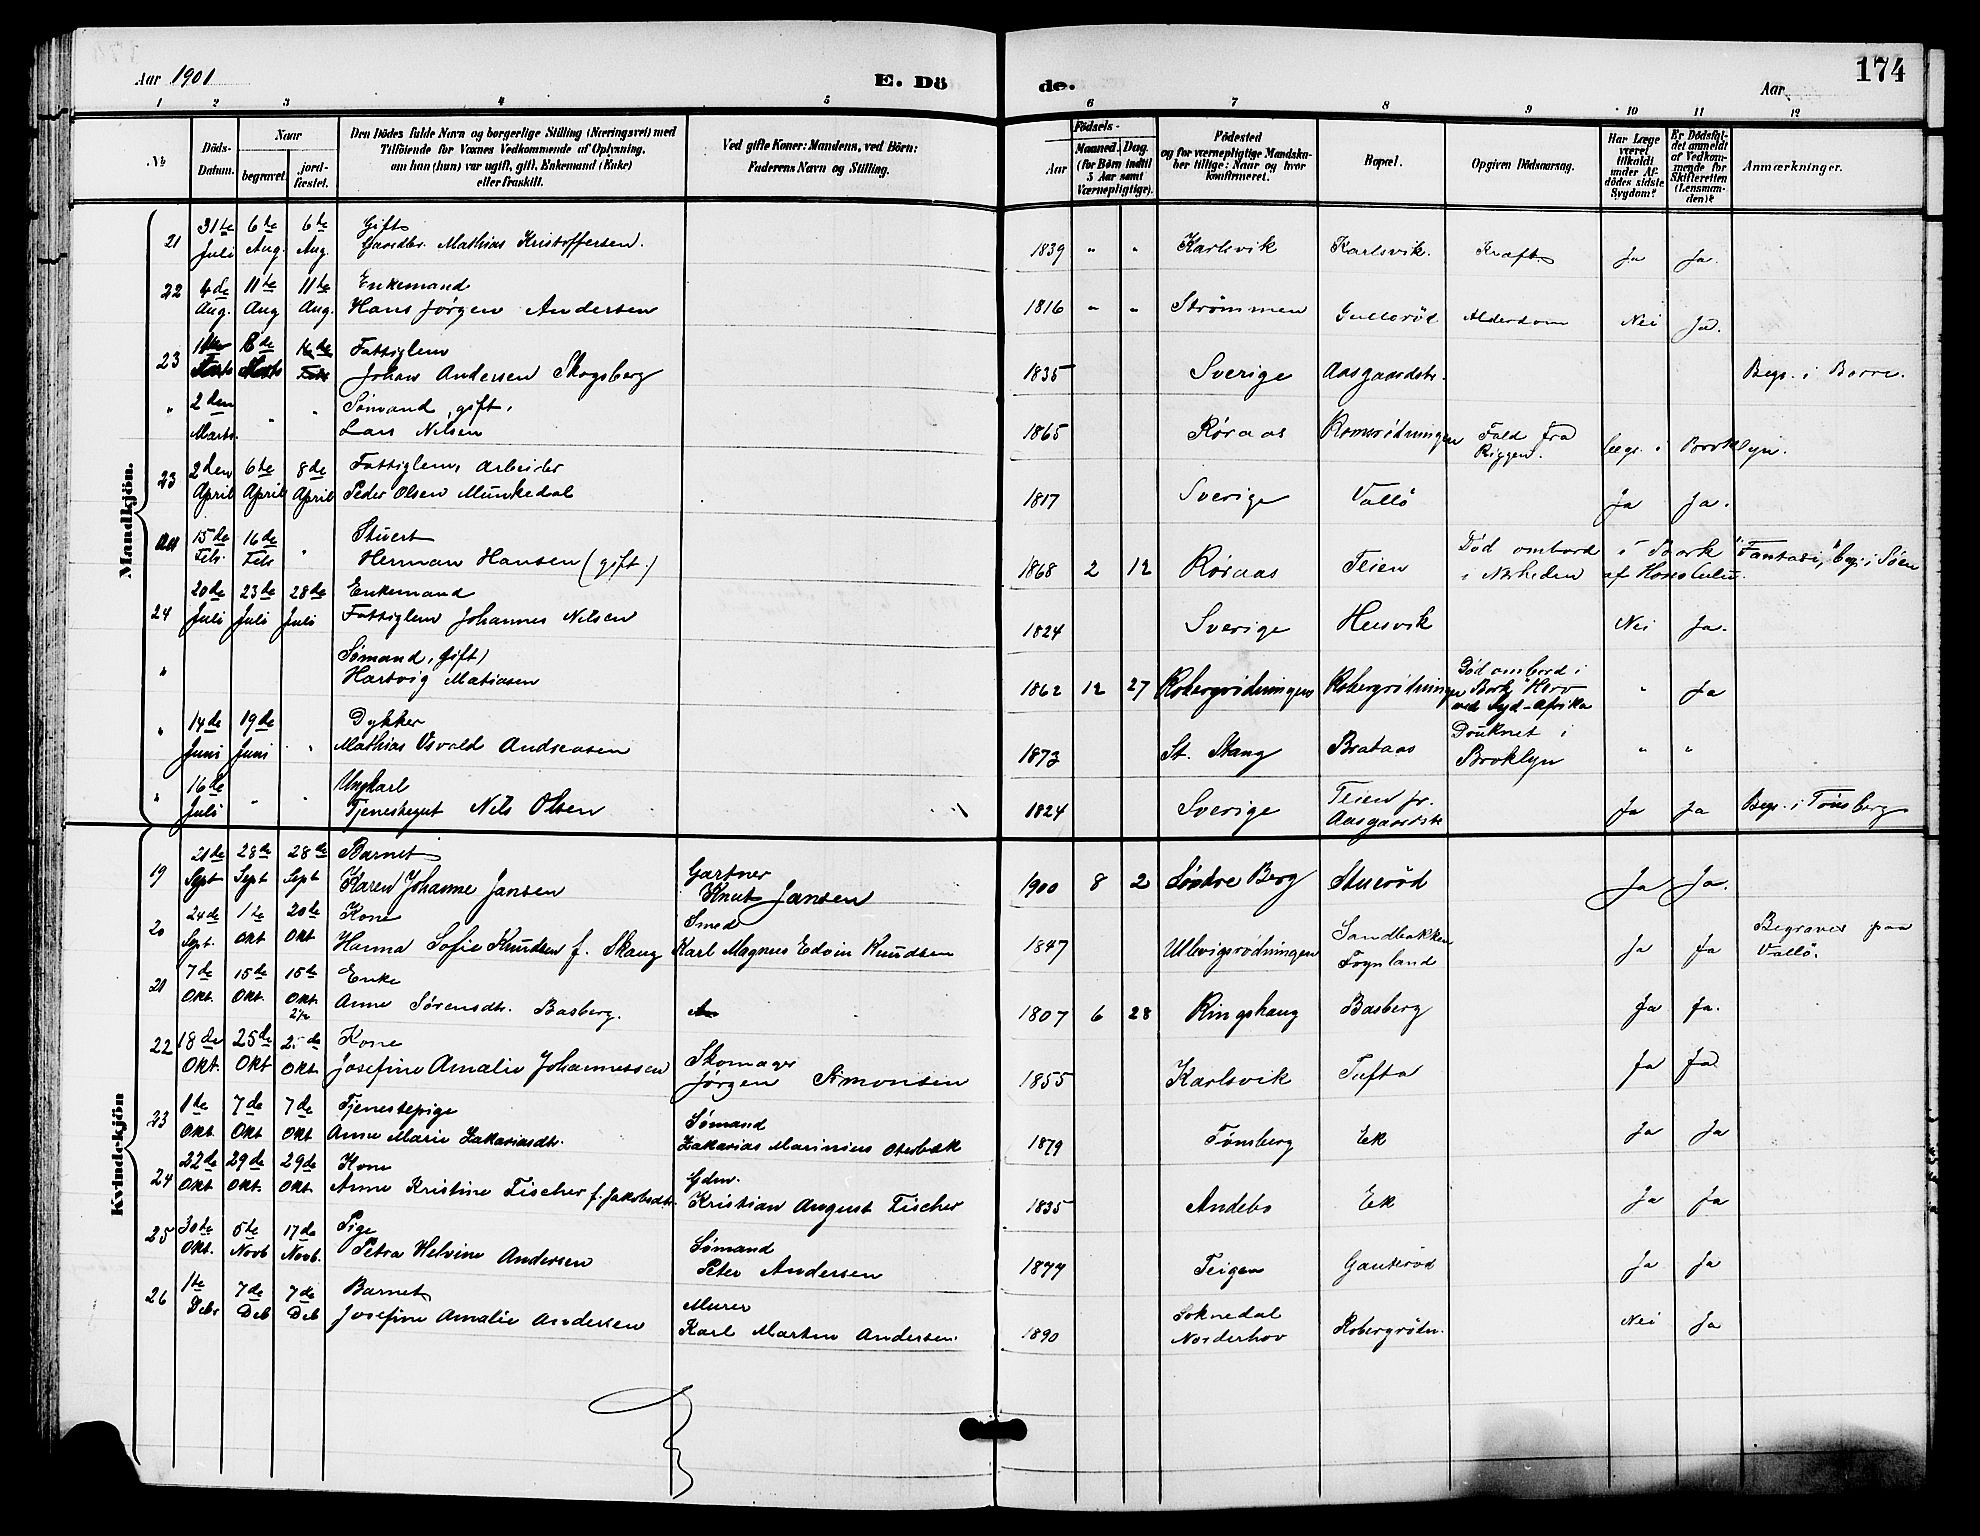 174
Aar 1901
E. Dö
de.
Aar
1 2 3 4 5 6 7 8 9 10 11 12
№
Döds-Datum.
Naar
begravet.
jord-fæstet.
Den Dödes fulde Navn og borgerlige Stilling (Næringsvei) med
Tilföiende for Voxnes Vedkommende af Oplysning,
om han (hun) var ugift, gift, Enkemand (Enke)
eller fraskilt.
Ved gifte Koner: Mandens, ved Börn:
Faderens Navn og Stilling.
Födsels-
Aar
Maaned. Dag.
(for Börn indtil
3 Aar samt
Værnepligtige).
Födested
og for værnepligtige Mandska-
ber tillige: Naar og hvor
konfirmeret.
Bopæl.
Opgiven Dödsaarsag.
Har Læge
været
tilkaldt
under Af-
dödes sidste
Sygdom?
Er Dödsfal-
det anmeldt
af Vedkom-
mende for
Skifteretten
(Lensman-
den)?
Anmærkninger.
Mandkjön.
31te 6te 6te Gift
21 Juli Aug. Aug. Gaardbr. Mathias Kristoffersen. 1839 " " Karlsvik Karlsvik. Kræft Ja Ja.
22 4de 11te 11te Enkemand
Aug. Aug Aug. Hans Jørgen Andersen 1816 " " Strømmen Gullerød Alderdom Nei Ja.
23 8de Fattiglem
Johan Andersen Skogsberg 1835 Sverige Aasgaardstr. Begr. i Borre.
" 2den Sømand, gift.
Marts. " " Lars Nilsen 1865 Røraas Romsrödningen Fald fra Riggen. begr. i Brooklyn.
23 2den 6te 8de Fattiglem, Arbeider
April April April Peder Olsen Munkedal 1817 Sverige Vallö Ja Ja.
15de 16de Stuert
Feb. Feb " Herman Hansen (gift.) 1868 2 12 Røraas Teien Död ombord i Bark "Fantasi," begr. i Søen
i Nærheden af Honolulu.
20de 23de 28de Enkemand
24 Juli Juli Juli Fattiglem Johannes Nilsen 1824 Sverige Husvik Nei Ja.
" Sømand, gift)
Hartvig Matiasen 1862 12 27 Robergrödningen Robergrödningen Död ombord i
Bark "Hero
ved Syd-Afrika " Ja
" 14de 19de Dykker
Juni Juni " Mathias Osvald Andreasen 1873 St. Stang Brataas Druknet i
Broklyn " "
" 16de Ungkarl
Juli " " Tjenestegut Nils Olsen 1824 Sverige Teien pr.
Aasgaardstr Ja Ja Begr. i Tönsberg
Kvindekjön
21de 28de 28de Barnet
19 Sept Sept Sept Karen Johanne Jansen Gartner
Knut Jansen 1900 8 2 Søndre Berg Sturöd Ja Ja.
20 24de 1te 20de Kone Smed
Sept. Okt Okt Hanna Sofie Knudsen f. Skaug Karl Magnus Edvin Knudsen 1847 Ulbvigsrødningen Sandbakken
Fognland Ja Ja Begravet paa
Vallö.
21 7de 15de 15de Enke
Okt. Okt. Okt Anne Sørensdtr. Basberg. 1807 6 28 Ringshaug Basberg Ja Ja.
22 18de 25de Kone
Okt. Okt Okt. Josefine Amalie Johannessen Skomager
Jørgen Simonsen 1855 Karlsvik Tufta Ja Ja
23 1te 7de 7de Tjenestepige Sømand
Okt. Okt Okt Anne Marie Zakariasdtr. Zakarias Marinius Oterbæk 1879 Tønsberg Ek Ja Ja
24 22de 29de 29de Kone Gdm.
Okt. Okt. Okt. Anne Kristine Fischer f. Jakobsdtr. Kristian August Fischer 1835 Andebo Ek Ja Ja
25 30te 5te 17de Pige Sømand
Okt. Novb Novb. Petra Helvine Andersen Peter Andersen 1877 Teigen Gauterød Ja Ja
26 1te 7de 7de Barnet Murer
Deb Deb Deb Josefine Amalie Andersen Karl Martin Andersen. 1890 Soknedal
Norderhov Robergrödn. Nei Ja